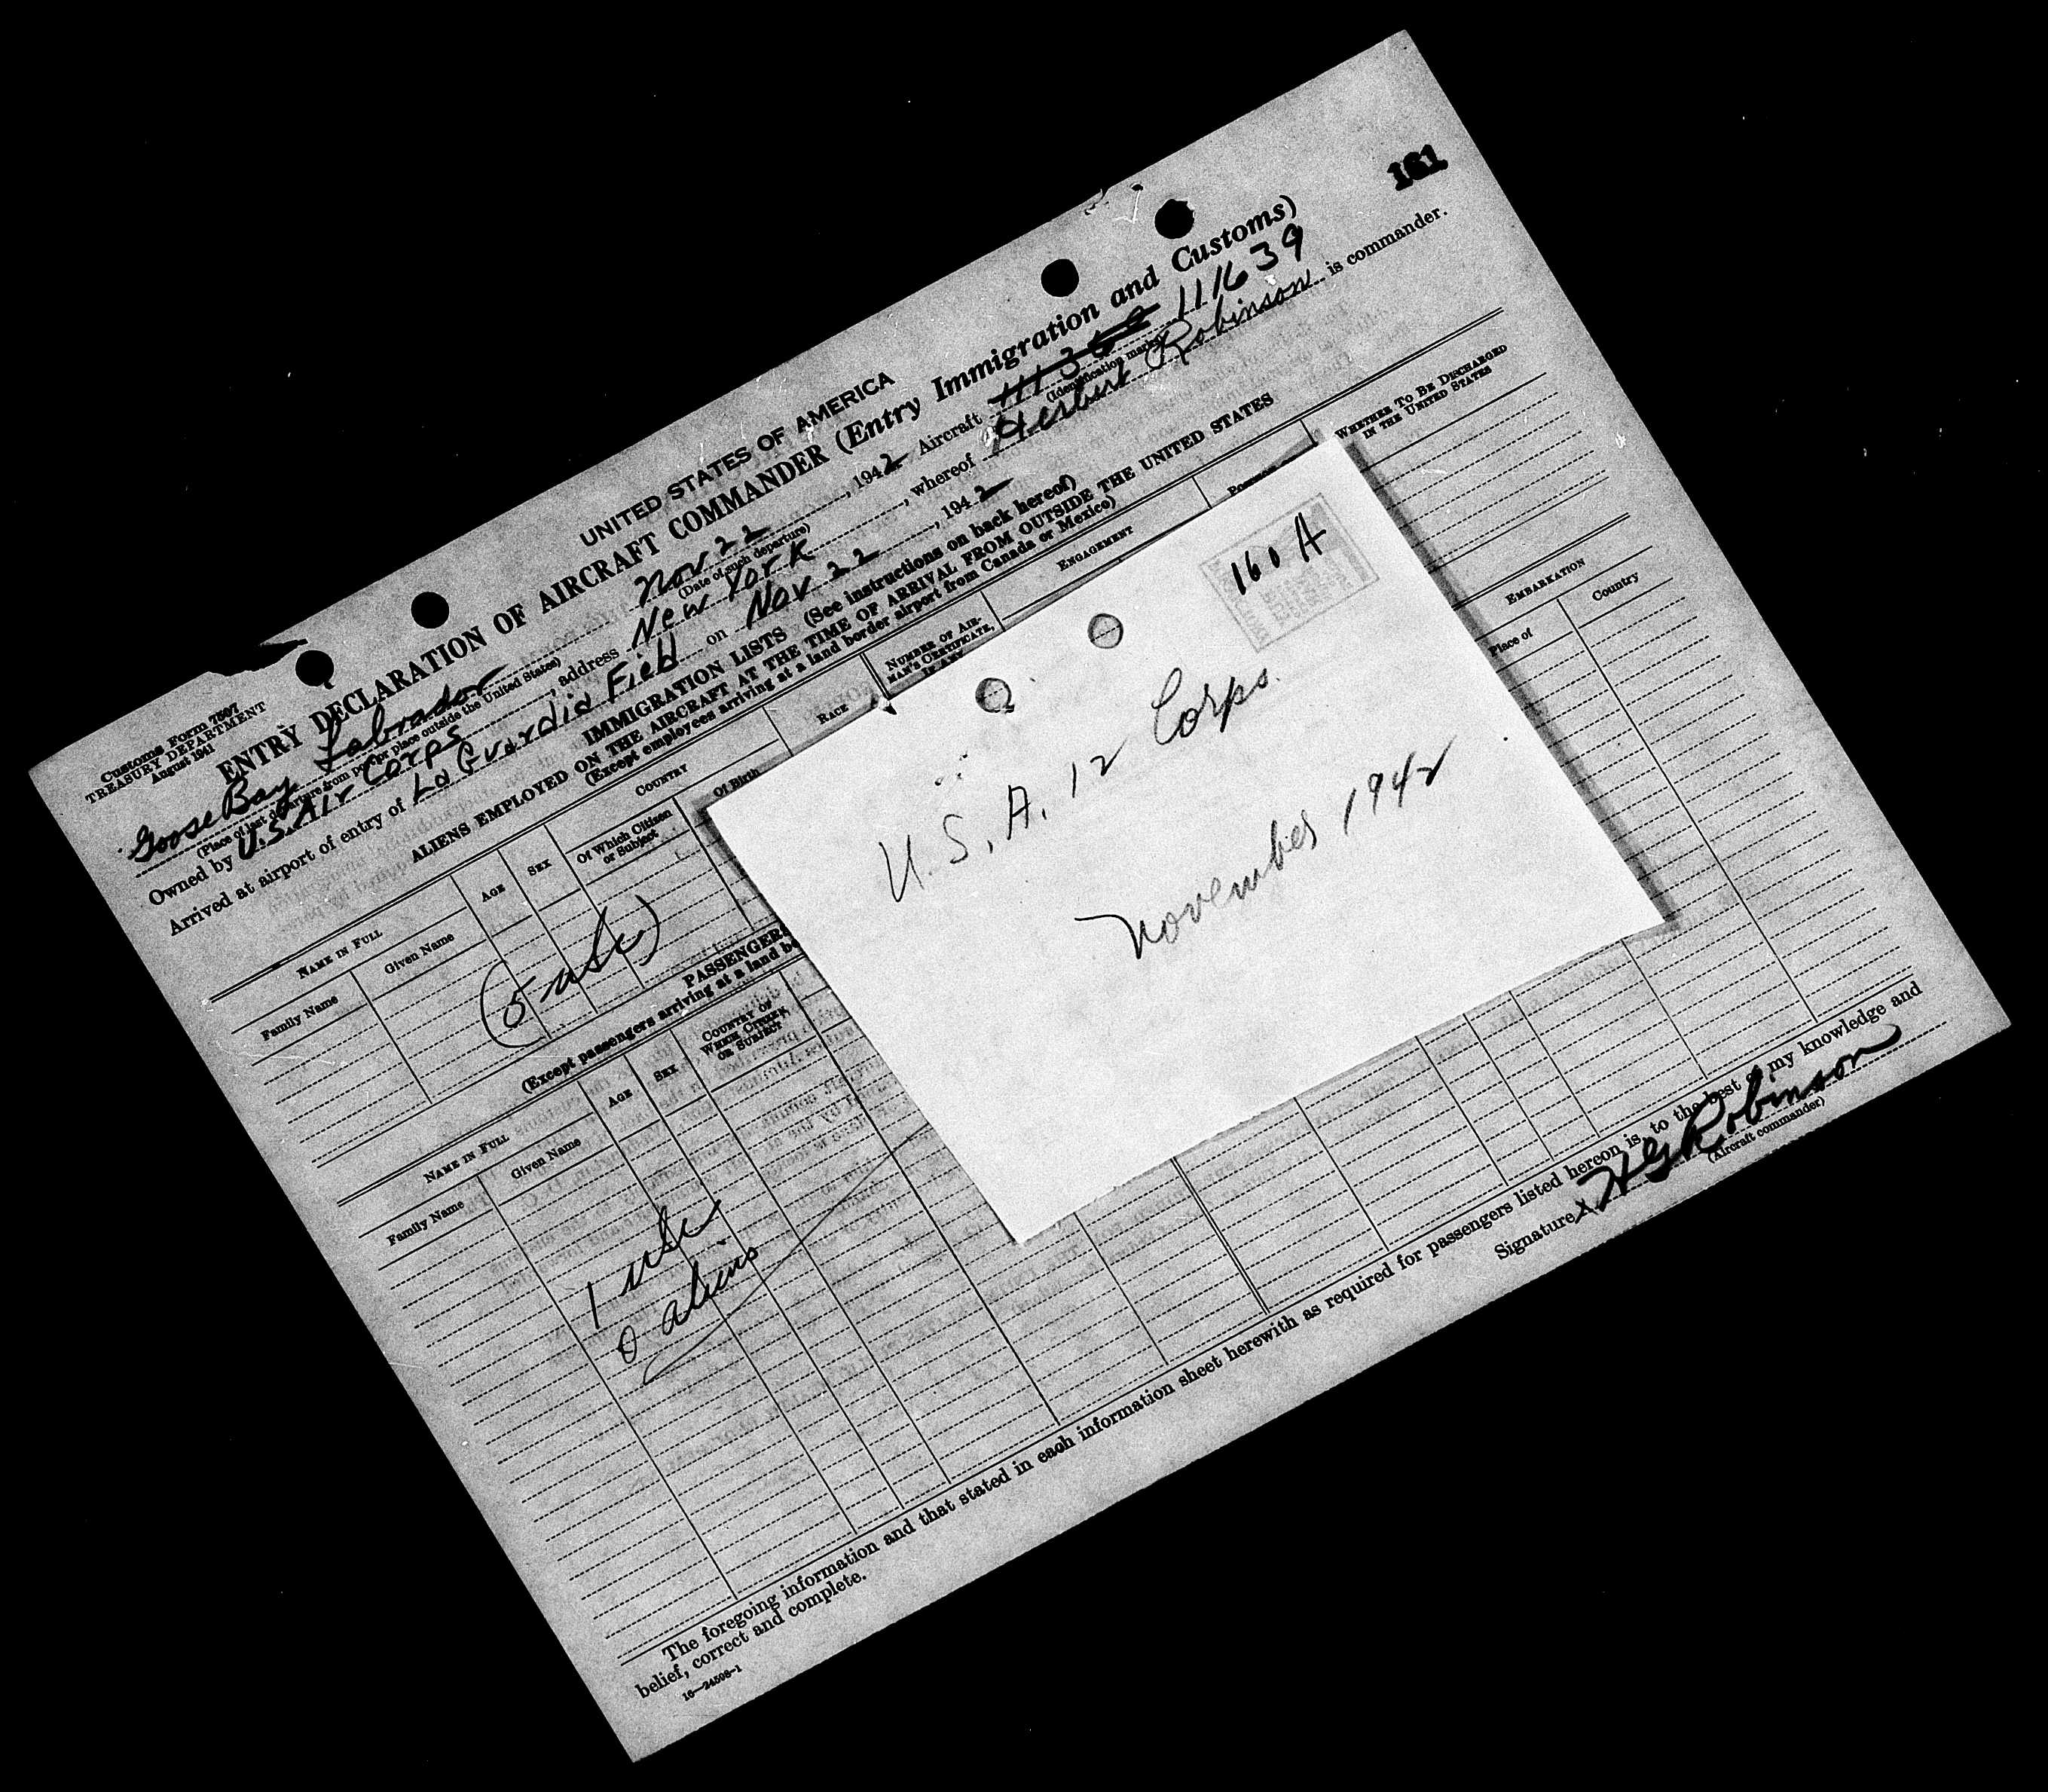 161
Customs Form 7507
TREASURY DEPARTMENT
August 1941
UNITED STATES OF AMERICA
ENTRY DECLARATION OF AIRCRAFT COMMANDER (Entry Immigration and Customs)
Goose Bay Labrador Nov 22, 1942 Aircraft 111639
(Place of last departure from port or place outside the United States) (Date of such departure) (Identification marks)
Owned by U.S. Air Corps, address New York, whereof Herbert Robinson is commander.
Arrived at airport of entry of La Guardia Field on Nov 22, 1942
IMMIGRATION LISTS (See instructions on back hereof)
ALIENS EMPLOYED ON THE AIRCRAFT AT THE TIME OF ARRIVAL FROM OUTSIDE THE UNITED STATES
(Except employees arriving at a land border airport from Canada or Mexico)
NAME IN FULL
Family Name
Given Name
AGE
SEX
COUNTRY
Of Which Citizen or Subject
Of Birth
RACE
NUMBER OF AIRMAN'S CERTIFICATE, IF ANY
ENGAGEMENT
WHETHER TO BE DISCHARGED IN THE UNITED STATES
(5 usc)
PASSENGERS
(Except passengers arriving at a land
NAME IN FULL
Family Name
Given Name
AGE
SEX
COUNTRY OF WHICH CITIZEN OR SUBJECT
EMBARKATION
Place of
Country
1 usc
0 aliens
160 A
U. S. A. 12 Corps.
November 1942
The foregoing information and that stated in each information sheet herewith as required for passengers listed hereon is, to the best of my knowledge and
belief, correct and complete.
Signature X HG Robinson
(Aircraft commander)
16—24508-1